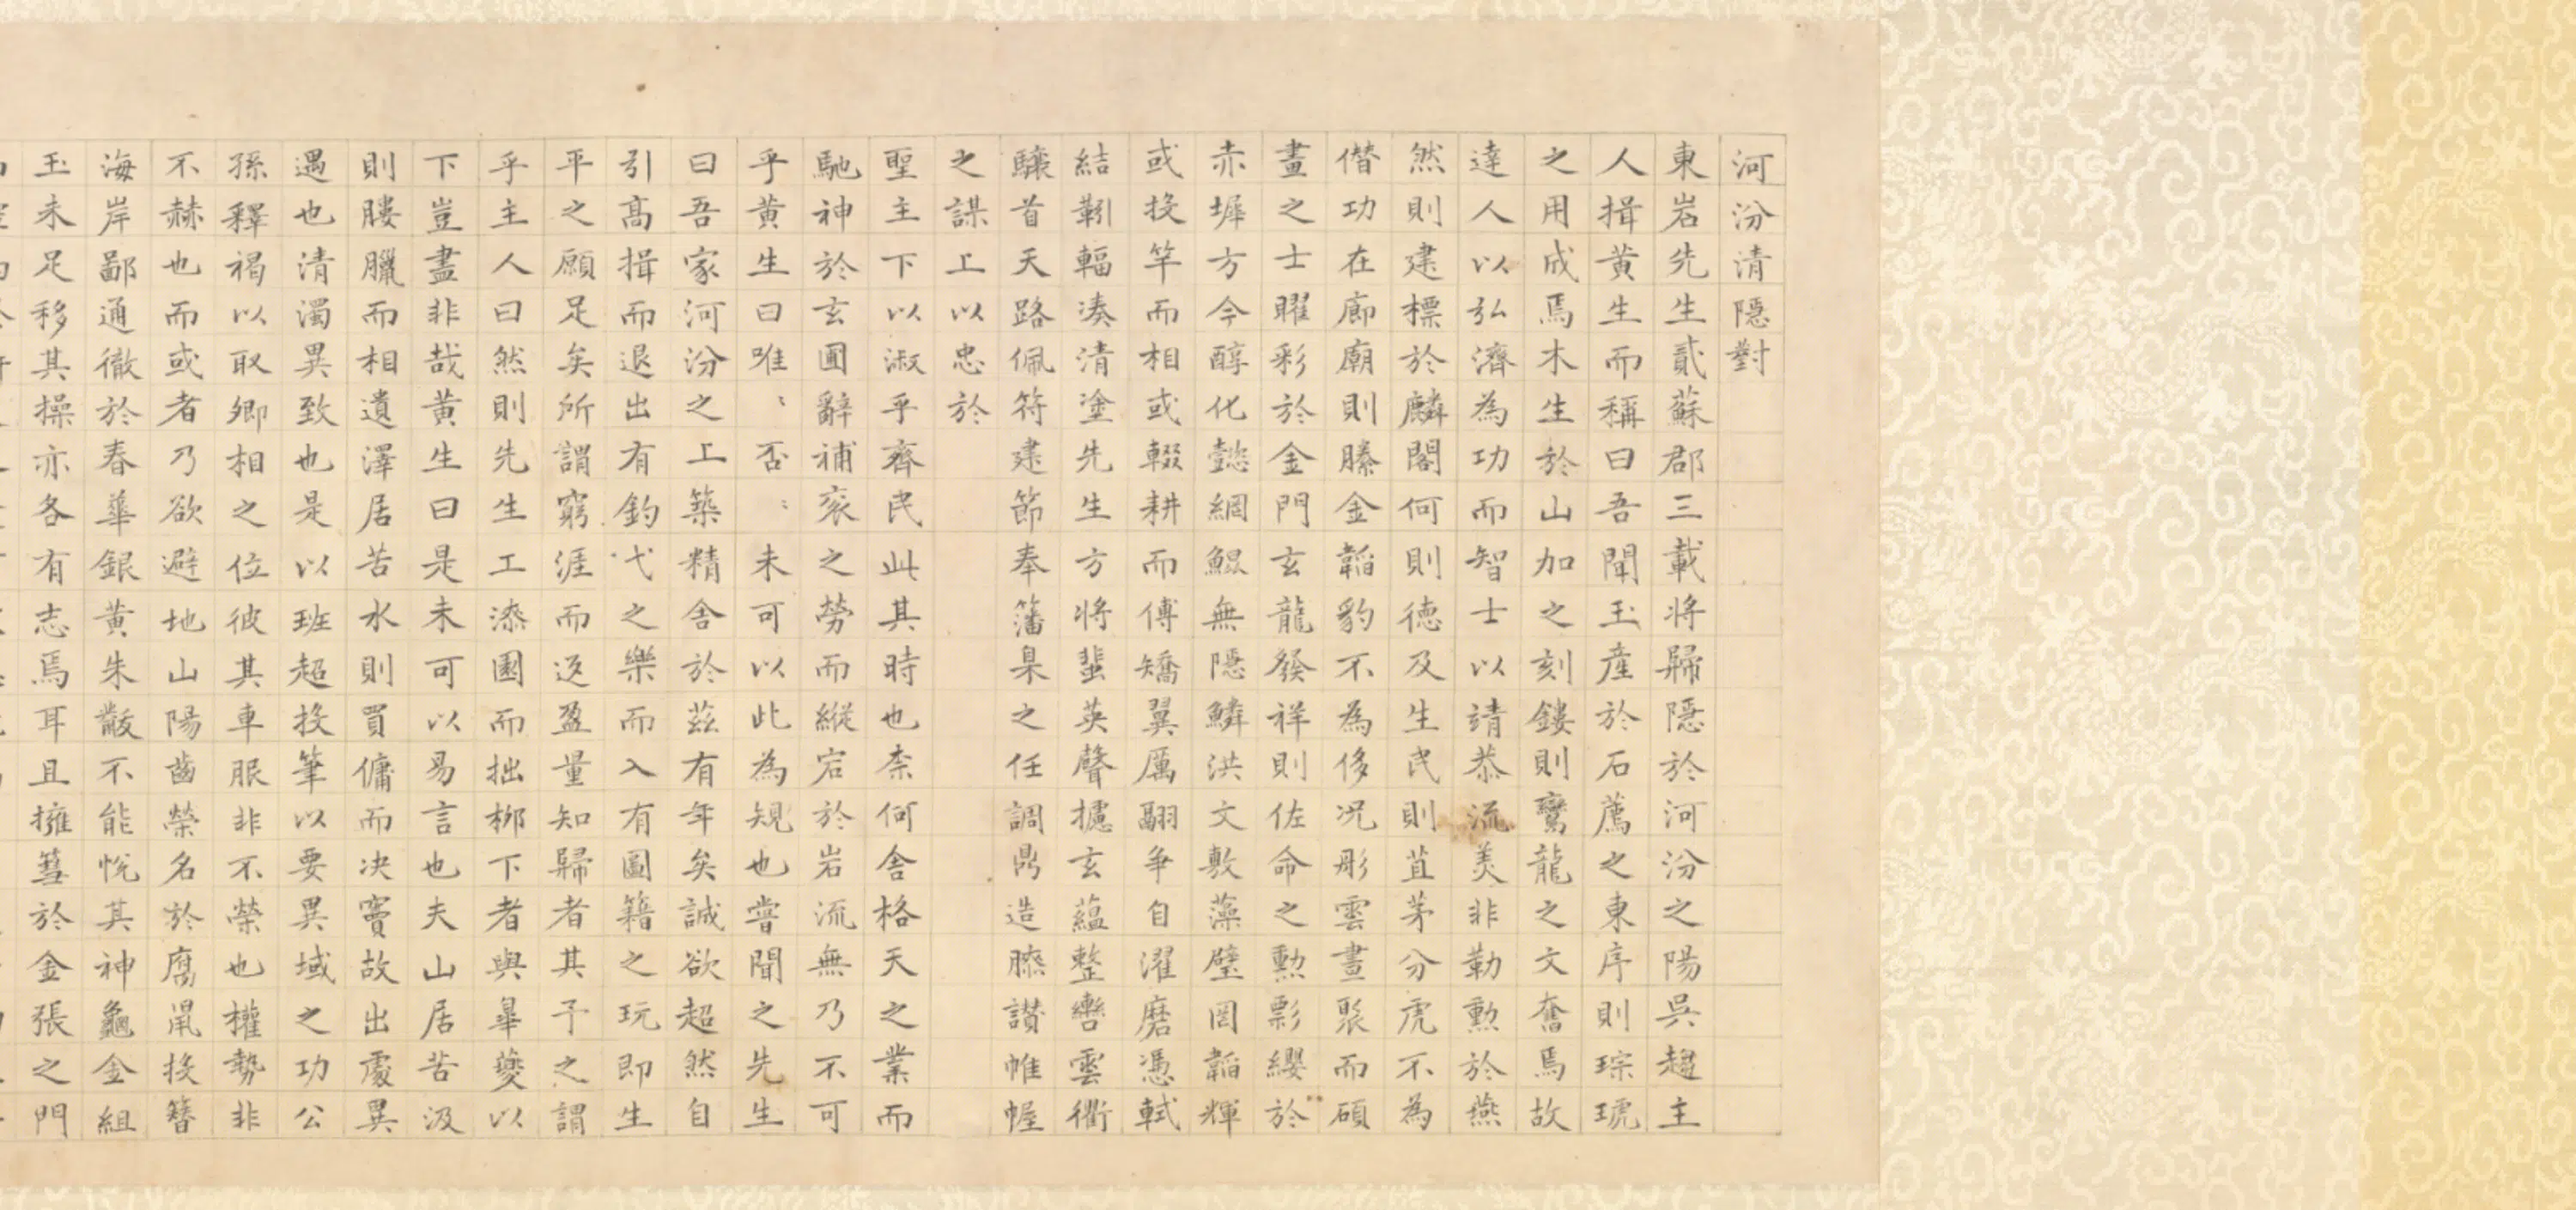 河汾清隠對
東岩先生貳蘇郡三載將歸隠於河汾之陽吳趨主
人揖黃生而稱曰吾聞玉產於石薦之東序則琮琥
之用成焉木生於山加之刻鏤則鸞龍之文奮焉故
達人以弘濟為功而智士以靖恭流美非勒勲於燕
然則建標於麟閣何則德及生民則苴茅分虎不為
僭功在廊廟則縢金韜豹不為侈况彤雲晝聚而碩
畫之士曜彩於金門玄龍發祥則佐命之勲影纓於
赤墀方今醇化懿綱鯤無隠鱗洪文敷藻璧罔韜輝
或投竿而相或輟耕而傅矯翼厲翮爭自濯磨憑軾
結靷輻湊清塗先生方將蜚英聲攄玄蘊整轡雲衢
驤首天路佩符建節奉藩臬之任調鼎造膝讃帷幄
之謀上以忠於
聖主下以淑乎齊民此其時也柰何舍格天之業而
馳神於玄圃辭補衮之勞而縱宕於岩流無乃不可
乎黃生曰唯〻否〻未可以此為規也嘗聞之先生
曰吾家河汾之上築精舍於茲有年矣誠欲超然自
引高揖而退出有釣弋之樂而入有圖籍之玩即生
平之願足矣所謂窮涯而返盈量知歸者其予之謂
乎主人曰然則先生工漆園而拙柳下者與畢夔以
下豈盡非哉黃生曰是未可以易言也夫山居苦汲
則膢臘而相遺澤居苦水則買傭而决竇故出處異
遇也清濁異致也是以班超投筆以要異域之功公
孫釋褐以取卿相之位彼其車服非不榮也權勢非
不赫也而或者乃欲避地山陽齒榮名於腐鼠投簪
海岸鄙通徹於春華銀黃朱黻不能悅其神龜金組
玉未足移其操亦各有志焉耳且擁篲於金張之門